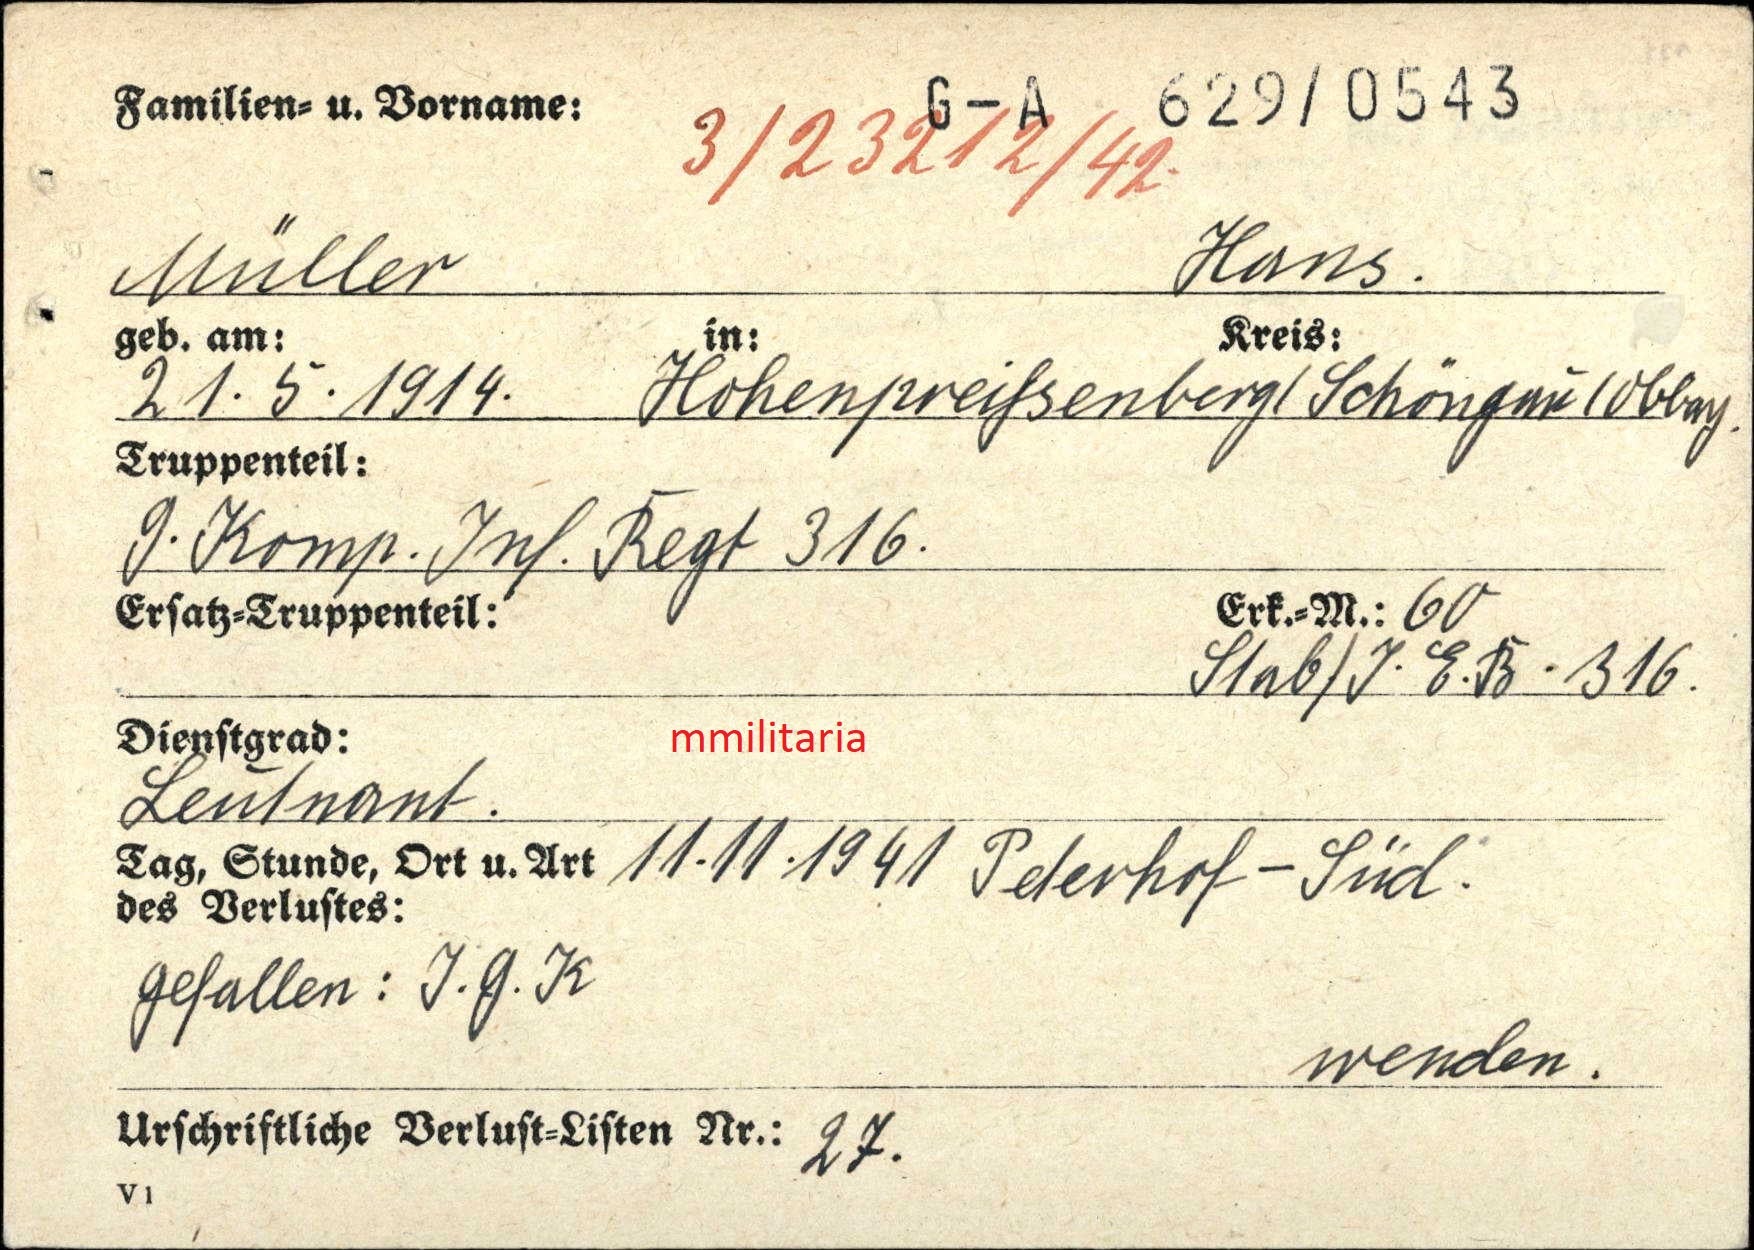 G-A 629/0543
Familien- u. Vorname:
3/23212/42.
Müller Hans.
geb. am: in: Kreis:
21.5.1914. Hohenpreißsenberg/ Schöngau/Obbay.
Truppenteil:
9. Komp. Inf. Regt 316.
Ersatz-Truppenteil: Erk.-M.: 60
Stab/J.E.B. 316.
Dienstgrad:
mmilitaria
Leutnant.
Tag, Stunde, Ort u. Art 11.11.1941 Peterhof-Süd.
des Verlustes:
gefallen: J.G.K
wenden.
Urschriftliche Verlust-Listen Nr.: 27.
V 1